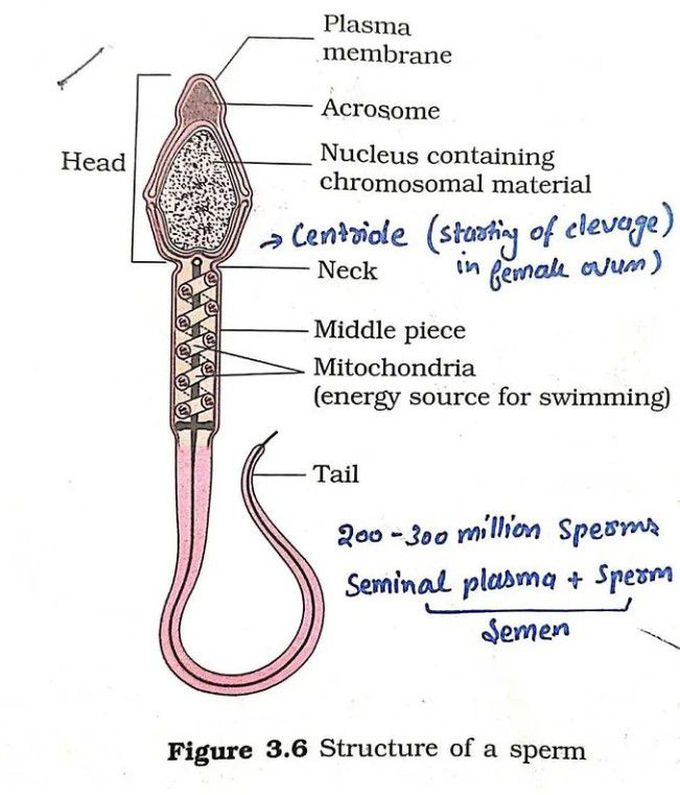 Plasma
membrane
Acrosome
Head
Nucleus containing
chromosomal material
→ Centriole (starting of clevage)
in female ovum)
Neck
Middle piece
Mitochondria
(energy source for swimming)
Tail
200-300 million Sperms
Seminal plasma + Sperm
Semen
Figure 3.6 Structure of a sperm